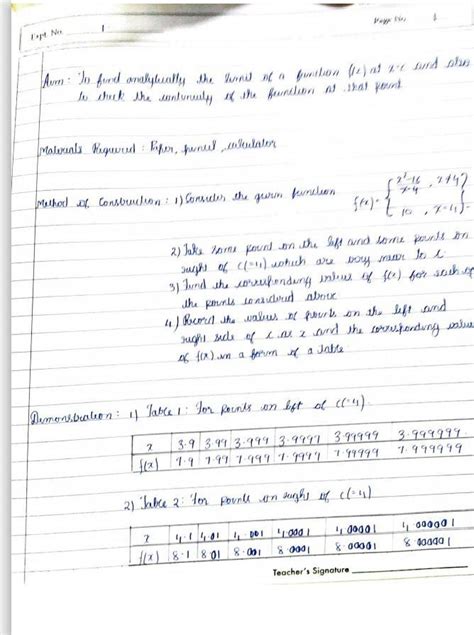 Expt. No. 1
Page No.
Aim : To find analytically the limit of a function f(x) at x=c and also
to check the continuity of the function at that point
Materials Required : Paper, pencil, calculator
Method of Construction : 1) Consider the given function f(x) = { x²-16 / x-4 , x≠4
10 , x=4 }
2) Take some point on the left and some points on
right of c(=4) which are very near to c
3) Find the corresponding values of f(x) for each of
the points considered above
4) Record the values of points on the left and
right side of c as x and the corresponding values
of f(x) in a form of a Table
Demonstration : 1) Table 1 : For points on left of c(=4).
x 3.9 3.99 3.999 3.9999 3.99999 3.999999
f(x) 7.9 7.99 7.999 7.9999 7.99999 7.999999
2) Table 2 : For points on right of c(=4)
x 4.1 4.01 4.001 4.0001 4.00001 4.000001
f(x) 8.1 8.01 8.001 8.0001 8.00001 8.000001
Teacher's Signature